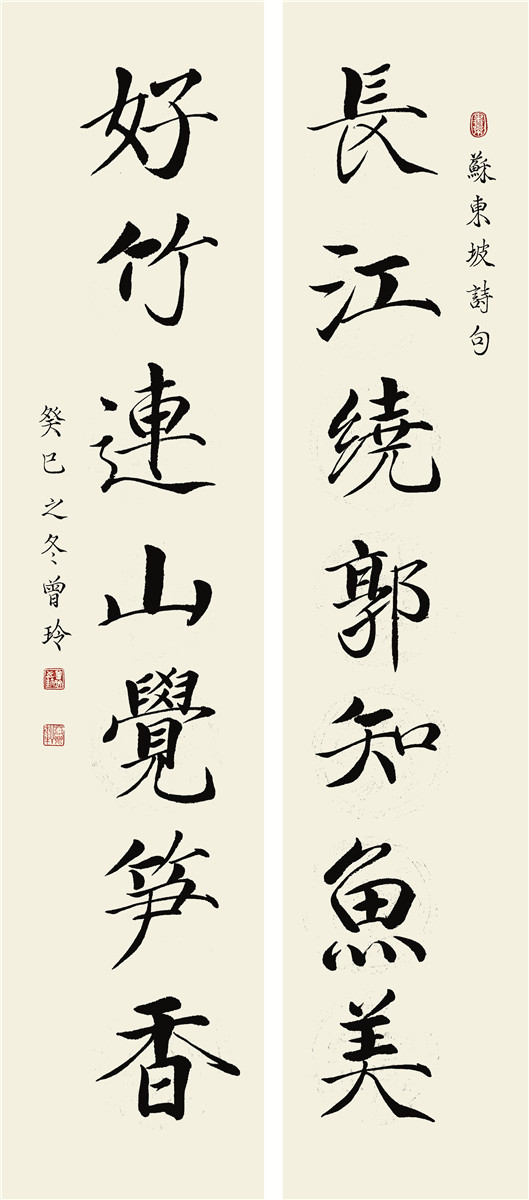 蘇東坡詩句
長江繞郭知魚美
好竹連山覺笋香
癸巳之冬曾玲